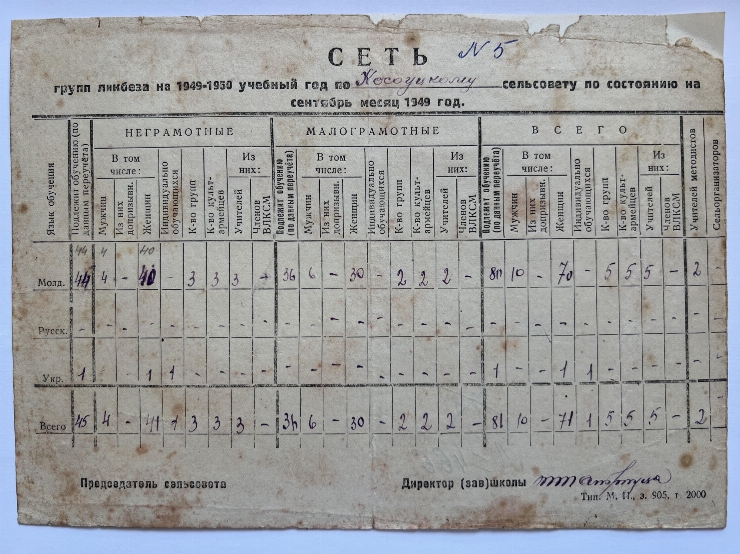 СЕТЬ N 5
групп ликбеза на 1949-1950 учебный год по Кособцкому сельсовету по состоянию на
сентябрь месяц 1949 год.
Язык обучения
Подлежит обучению (по данным переучёта)
НЕГРАМОТНЫЕ
В том числе:
Мужчин
Из них допризывн.
Женщин
Индивидуально обучающихся
К-во групп
К-во культ-армейцев
Из них:
Учителей
Членов ВЛКСМ
МАЛОГРАМОТНЫЕ
Подлежит обучению (по данным переучёта)
В том числе:
Мужчин
Из них допризывн.
Женщин
Индивидуально обучающихся
К-во групп
К-во культ-армейцев
Из них:
Учителей
Членов ВЛКСМ
ВСЕГО
Подлежит обучению (по данным переучёта)
В том числе:
Мужчин
Из них допризывн.
Женщин
Индивидуально обучающихся
К-во групп
К-во культ-армейцев
Из них:
Учителей
Членов ВЛКСМ
Учителей методистов
Сельорганизаторов
44 4 40
Молд. 44 4 - 40 - 3 3 3 - 36 6 - 30 - 2 2 2 - 80 10 - 70 - 5 5 5 - 2
Русск. - - - - - - - - - - - - - - - - - - - - - - - - - - - -
Укр. 1 - - 1 1 - - - - - - - - - - - - - 1 - - 1 1 - - - - -
Всего 45 4 - 41 1 3 3 3 - 36 6 - 30 - 2 2 2 - 81 10 - 71 1 5 5 5 - 2
Председатель сельсовета
Директор (зав)школы
Тип. М. П., з. 905, т 2000